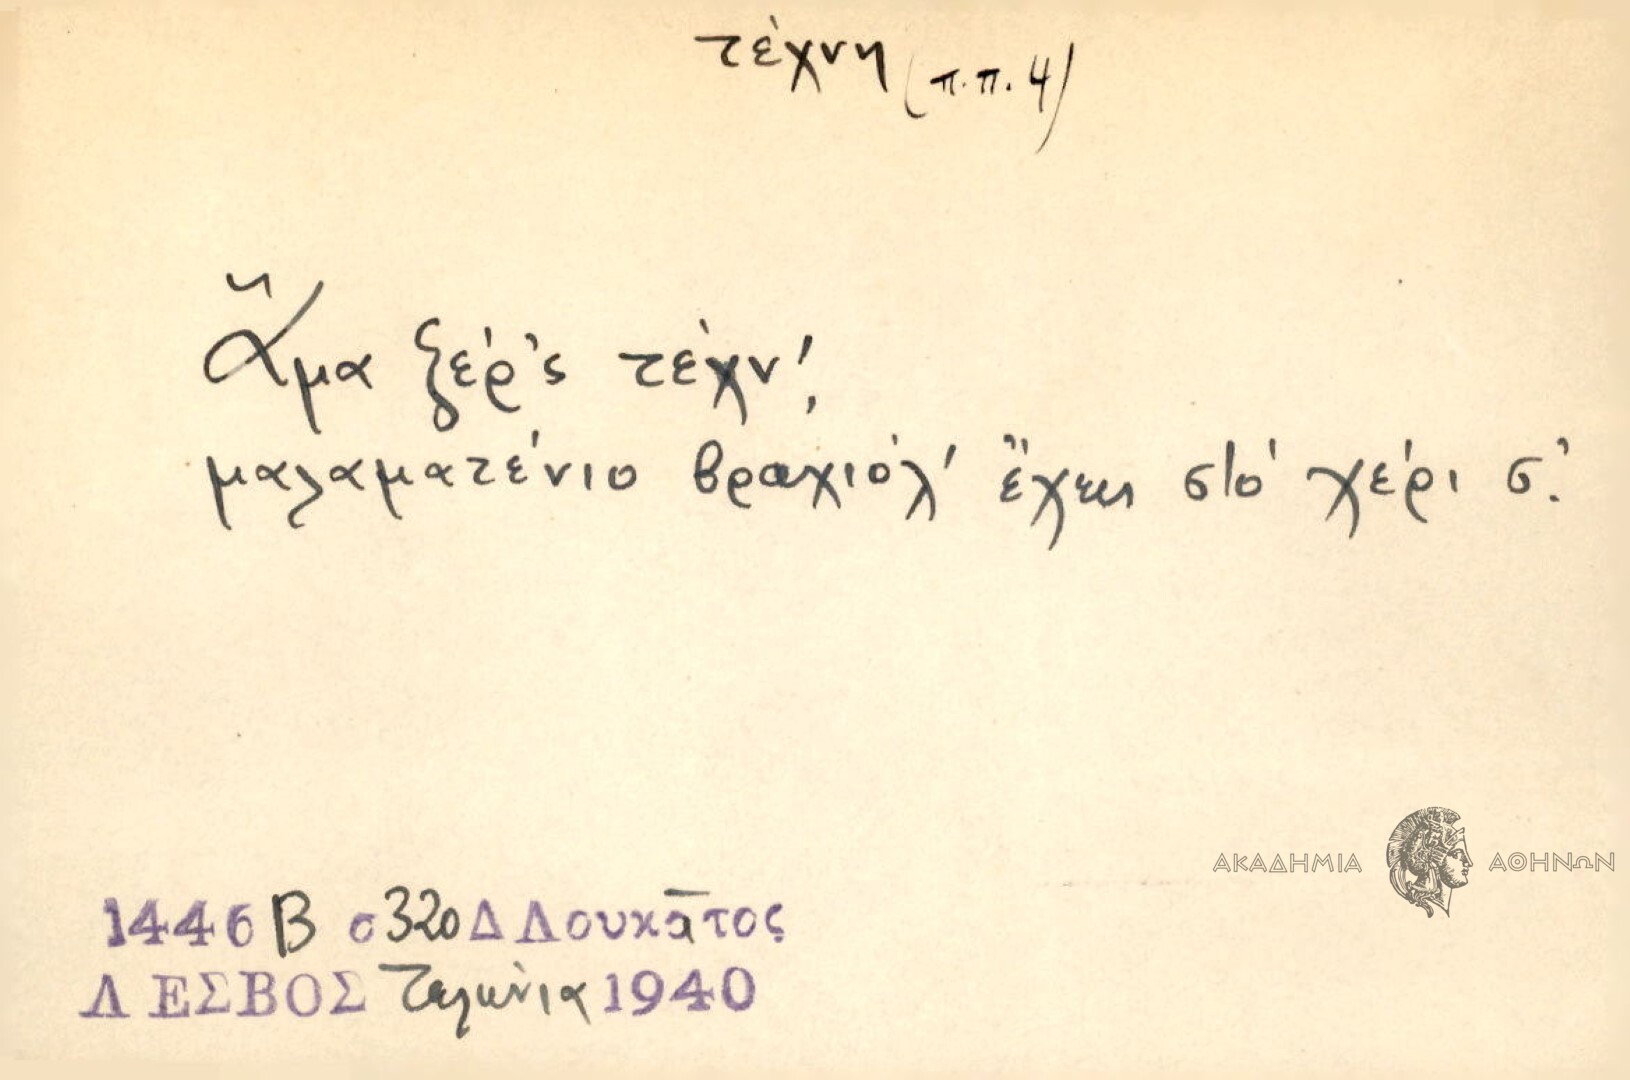 τέχνη (π.π. 4)
Ἅμα ξέρ'ς τέχν',
μαλαματένιο βραχιόλ' ἔχεις στό χέρι σ'.
ΑΚΑΔΗΜΙΑ ΑΘΗΝΩΝ
1446 Β σ 320 Δ Λουκᾱτος
ΛΕΣΒΟΣ Τελώνια 1940